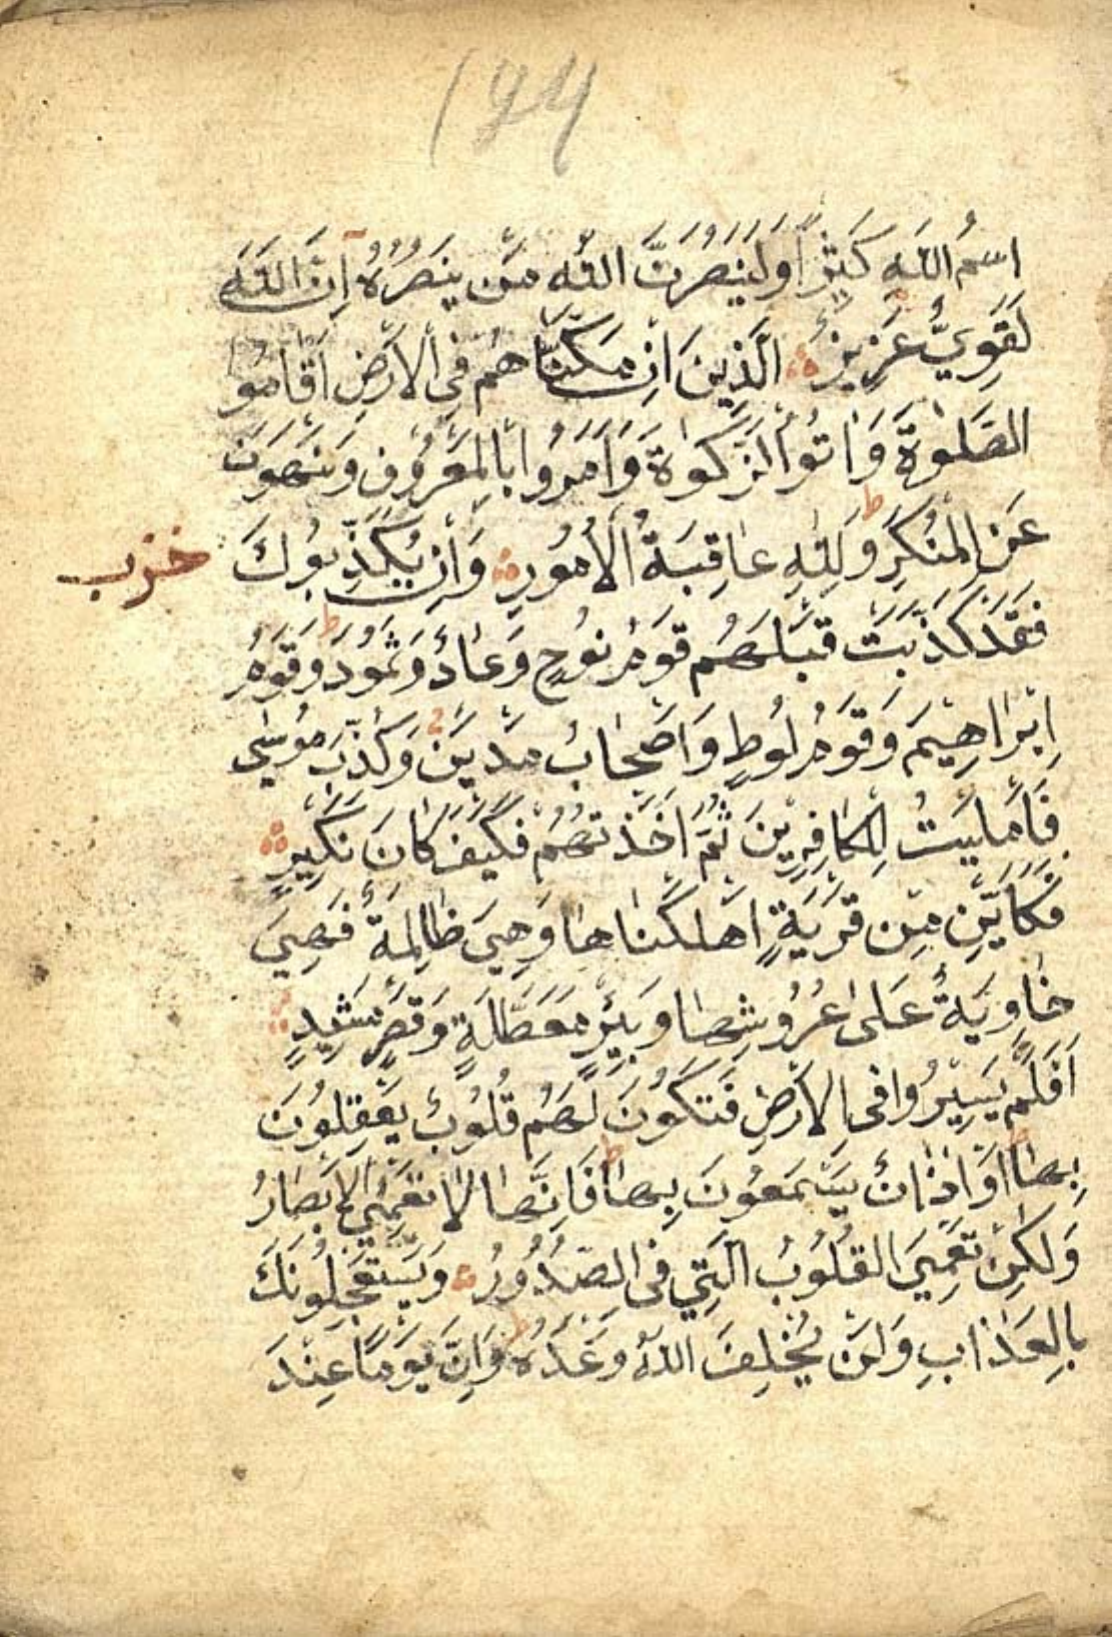 ۱۹۴
اسْمُ اللَّهِ كَثِيرًا وَلَيَنْصُرَنَّ اللَّهُ مَنْ يَنْصُرُهُ إِنَّ اللَّهَ
لَقَوِيٌّ عَزِيزٌ الَّذِينَ اِنْ مَكَّنَّاهُمْ فِي الْاَرْضِ اَقَامُوا
الصَّلٰوةَ وَاٰتَوُا الزَّكٰوةَ وَاَمَرُوا بِالْمَعْرُوفِ وَنَهَوْا
عَنِ الْمُنْكَرِ ط وَلِلّٰهِ عَاقِبَةُ الْاُمُورِ وَاِنْ يُكَذِّبُوكَ
حزب
فَقَدْ كَذَّبَتْ قَبْلَهُمْ قَوْمُ نُوحٍ وَعَادٌ وَثَمُودُ ط وَقَوْمُ
اِبْرٰاهِيمَ وَقَوْمُ لُوطٍ وَاَصْحَابُ مَدْيَنَ وَكُذِّبَ مُوسٰى
فَاَمْلَيْتُ لِلْكَافِرِينَ ثُمَّ اَخَذْتُهُمْ فَكَيْفَ كَانَ نَكِيرِ
فَكَاَيِّنْ مِنْ قَرْيَةٍ اَهْلَكْنَاهَا وَهِيَ ظَالِمَةٌ فَهِيَ
خَاوِيَةٌ عَلٰى عُرُوشِهَا وَبِئْرٍ مُعَطَّلَةٍ وَقَصْرٍ مَشِيدٍ
اَفَلَمْ يَسِيرُوا فِى الْاَرْضِ فَتَكُونَ لَهُمْ قُلُوبٌ يَعْقِلُونَ
بِهَا اَوْ اٰذَانٌ يَسْمَعُونَ بِهَا ط فَاِنَّهَا لَا تَعْمَى الْاَبْصَارُ
وَلٰكِنْ تَعْمَى الْقُلُوبُ الَّتِي فِى الصُّدُورِ وَيَسْتَعْجِلُونَكَ
بِالْعَذَابِ وَلَنْ يُخْلِفَ اللَّهُ وَعْدَهُ ط وَاِنَّ يَوْمًا عِنْدَ